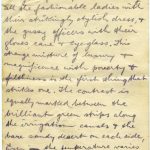 all the fashionable ladies with
their strikingly stylish dress, &
the gray officers with their
gloves cane & eyeglass. This
strange mixture of luxury,
magnificence with poverty &
filthiness is the first thing that
strikes one. The contrast is
equally marked between the
brilliant green strips along
the irrigation canals & the
bare sandy desert on each side.
the temperature varies